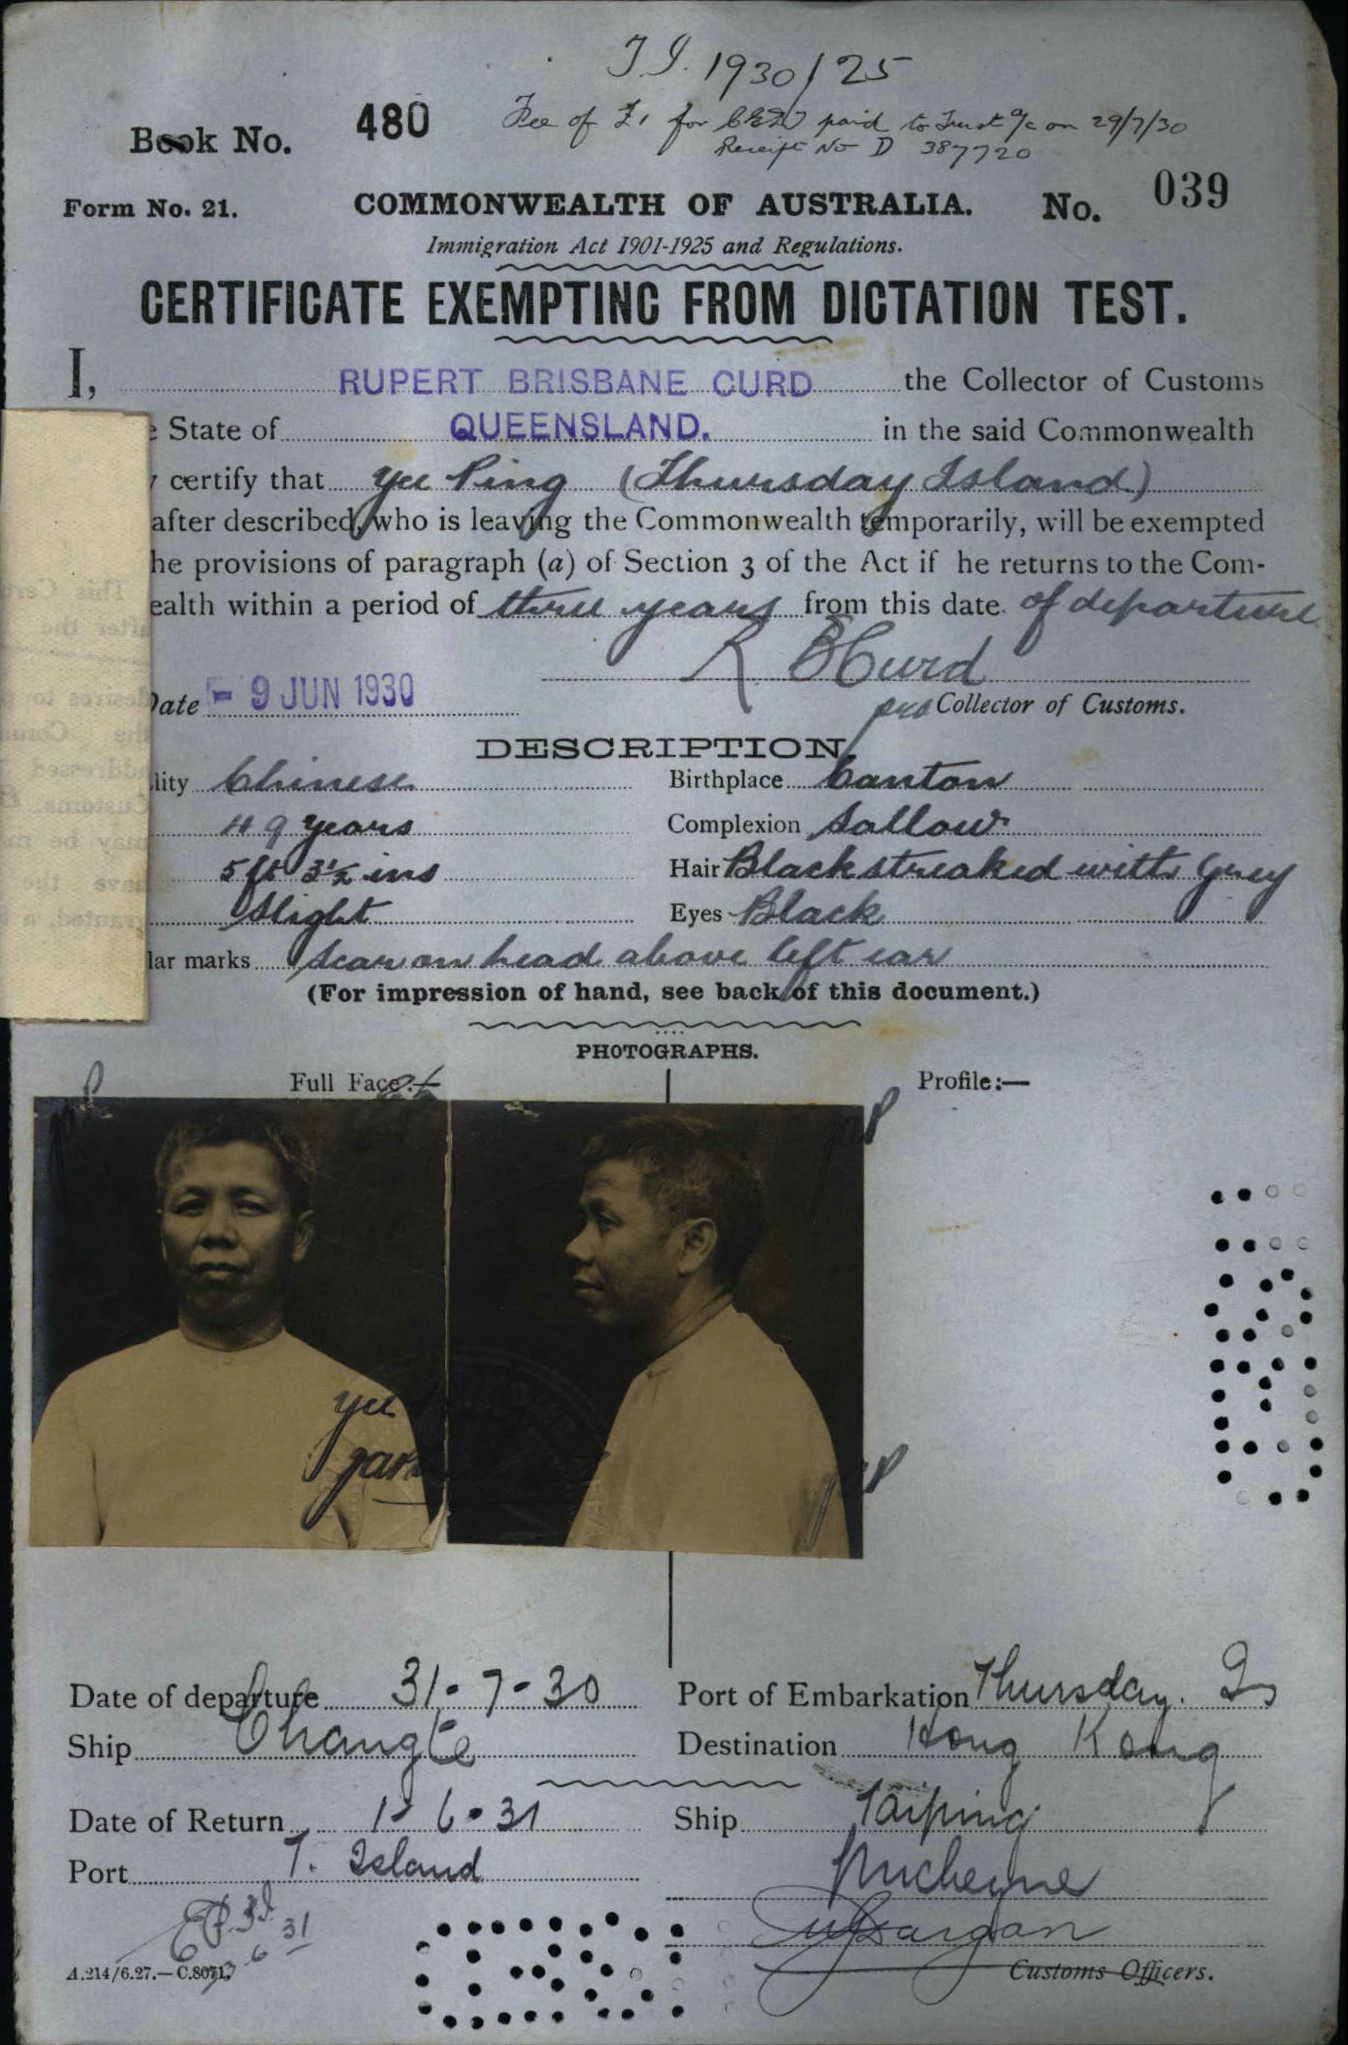 T.I. 1930/25
Book No. 480
Fee of £1 for CEDT paid to Trust a/c on 29/7/30
Receipt No D 387720
Form No. 21. COMMONWEALTH OF AUSTRALIA. No. 039
Immigration Act 1901-1925 and Regulations.
CERTIFICATE EXEMPTING FROM DICTATION TEST.
I, RUPERT BRISBANE CURD the Collector of Customs
State of QUEENSLAND. in the said Commonwealth
certify that Yee Ping (Thursday Island)
after described, who is leaving the Commonwealth temporarily, will be exempted
he provisions of paragraph (a) of Section 3 of the Act if he returns to the Com-
ealth within a period of three years from this date of departure
R B Curd
Date - 9 JUN 1930 pro Collector of Customs.
DESCRIPTION.
lity Chinese Birthplace Canton
49 years Complexion Sallow
5 ft 3½ ins Hair Black streaked with grey
Slight Eyes Black
lar marks Scar on head above left ear
(For impression of hand, see back of this document.)
PHOTOGRAPHS.
Full Face:— Profile:—
Yee
Date of departure 31-7-30 Port of Embarkation Thursday. Is
Ship Changte Destination Hong Kong
Date of Return 1-6-31 Ship Taiping
Port T. Island
A.214/6.27.—C.8071. Customs Officers.